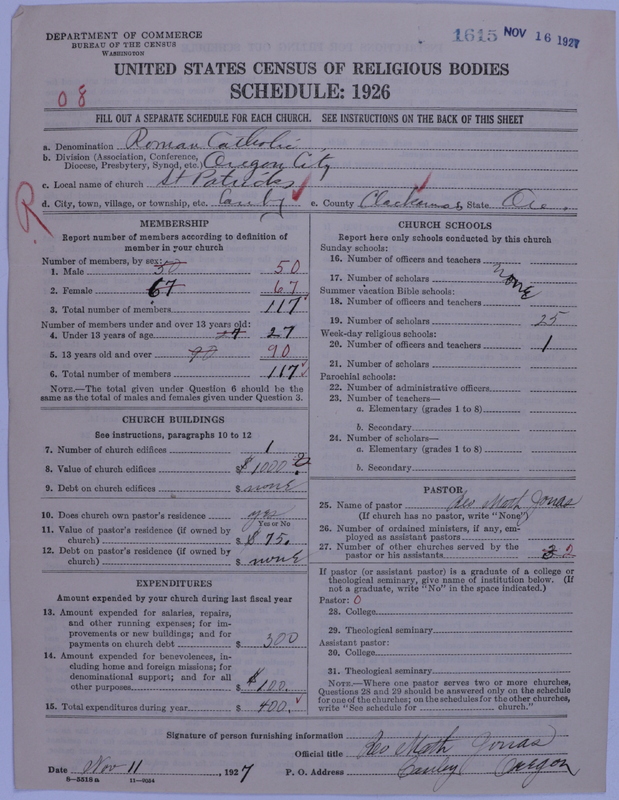 DEPARTMENT OF COMMERCE
BUREAU OF THE CENSUS
WASHINGTON
1615 NOV 16 1927
UNITED STATES CENSUS OF RELIGIOUS BODIES
SCHEDULE: 1926
08
FILL OUT A SEPARATE SCHEDULE FOR EACH CHURCH. SEE INSTRUCTIONS ON THE BACK OF THIS SHEET
a. Denomination Roman Catholic
b. Division (Association, Conference, Diocese, Presbytery, Synod, etc.) Oregon City
c. Local name of church St Patricks
d. City, town, village, or township, etc. Canby e. County Clackamas State Ore.
R
MEMBERSHIP
Report number of members according to definition of
member in your church
Number of members, by sex:
1. Male 50 50
2. Female 67 67
3. Total number of members 117
Number of members under and over 13 years old:
4. Under 13 years of age 27 27
5. 13 years old and over 90 90
6. Total number of members 117
NOTE.—The total given under Question 6 should be the
same as the total of males and females given under Question 3.
CHURCH BUILDINGS
See instructions, paragraphs 10 to 12
7. Number of church edifices 1
8. Value of church edifices $ 1000
9. Debt on church edifices $ none
10. Does church own pastor's residence yes
Yes or No
11. Value of pastor's residence (if owned by
church) $ 75.
12. Debt on pastor's residence (if owned by
church) $ none
EXPENDITURES
Amount expended by your church during last fiscal year
13. Amount expended for salaries, repairs,
and other running expenses; for im-
provements or new buildings; and for
payments on church debt $ 300
14. Amount expended for benevolences, in-
cluding home and foreign missions; for
denominational support; and for all
other purposes $ 100.
15. Total expenditures during year $ 400.
CHURCH SCHOOLS
Report here only schools conducted by this church
Sunday schools:
16. Number of officers and teachers
none
17. Number of scholars
Summer vacation Bible schools:
18. Number of officers and teachers
19. Number of scholars 25
Week-day religious schools:
20. Number of officers and teachers 1
21. Number of scholars
Parochial schools:
22. Number of administrative officers
23. Number of teachers—
a. Elementary (grades 1 to 8)
b. Secondary
24. Number of scholars—
a. Elementary (grades 1 to 8)
b. Secondary
PASTOR
25. Name of pastor Rev Math Jonas
(If church has no pastor, write "None")
26. Number of ordained ministers, if any, em-
ployed as assistant pastors
27. Number of other churches served by the
pastor or his assistants 2
If pastor (or assistant pastor) is a graduate of a college or
theological seminary, give name of institution below. (If
not a graduate, write "No" in the space indicated.)
Pastor: 0
28. College
29. Theological seminary
Assistant pastor:
30. College
31. Theological seminary
NOTE.—Where one pastor serves two or more churches,
Questions 28 and 29 should be answered only on the schedule
for one of the churches; on the schedules for the other churches,
write "See schedule for church."
Signature of person furnishing information
Official title Rev Math Jonas
Date Nov 11, 1927 P. O. Address Canby Oregon
8—5518a 11—9034